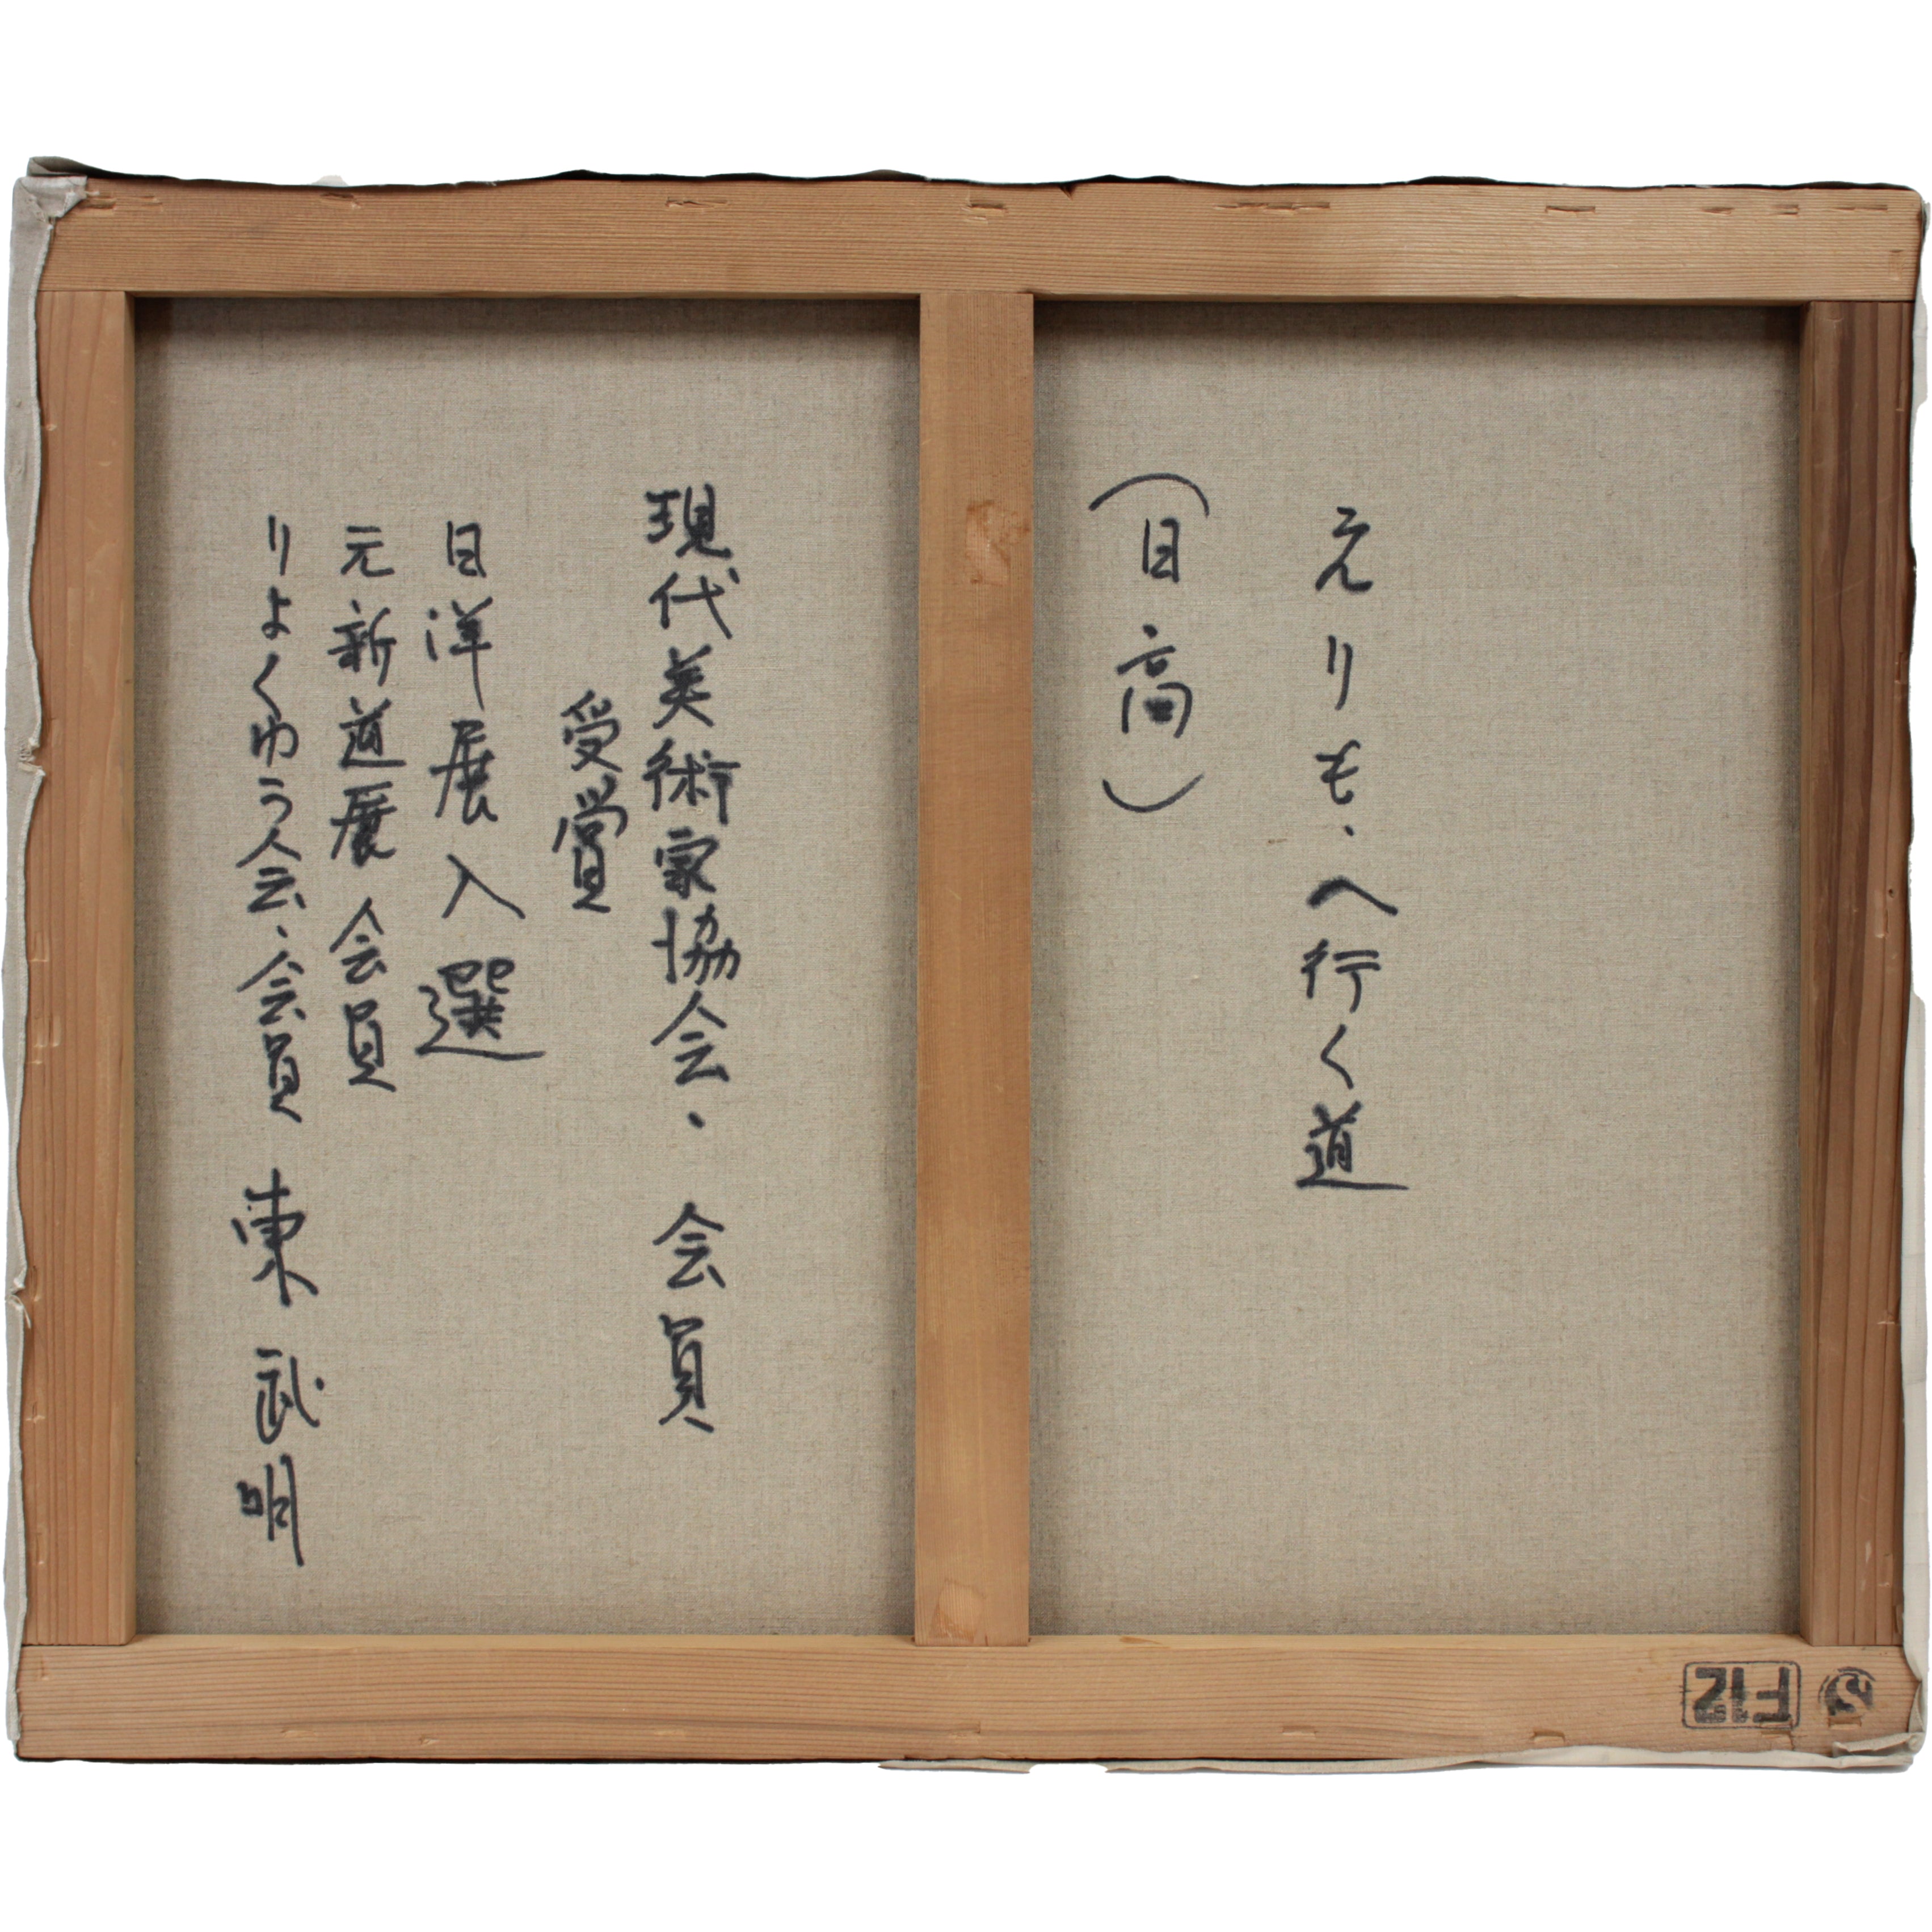 えりも、へ行く道
(日高)
現代美術家協会、会員
受賞
日洋展入選
元新道展会員
りよくゆう会、会員 東 武明
F12